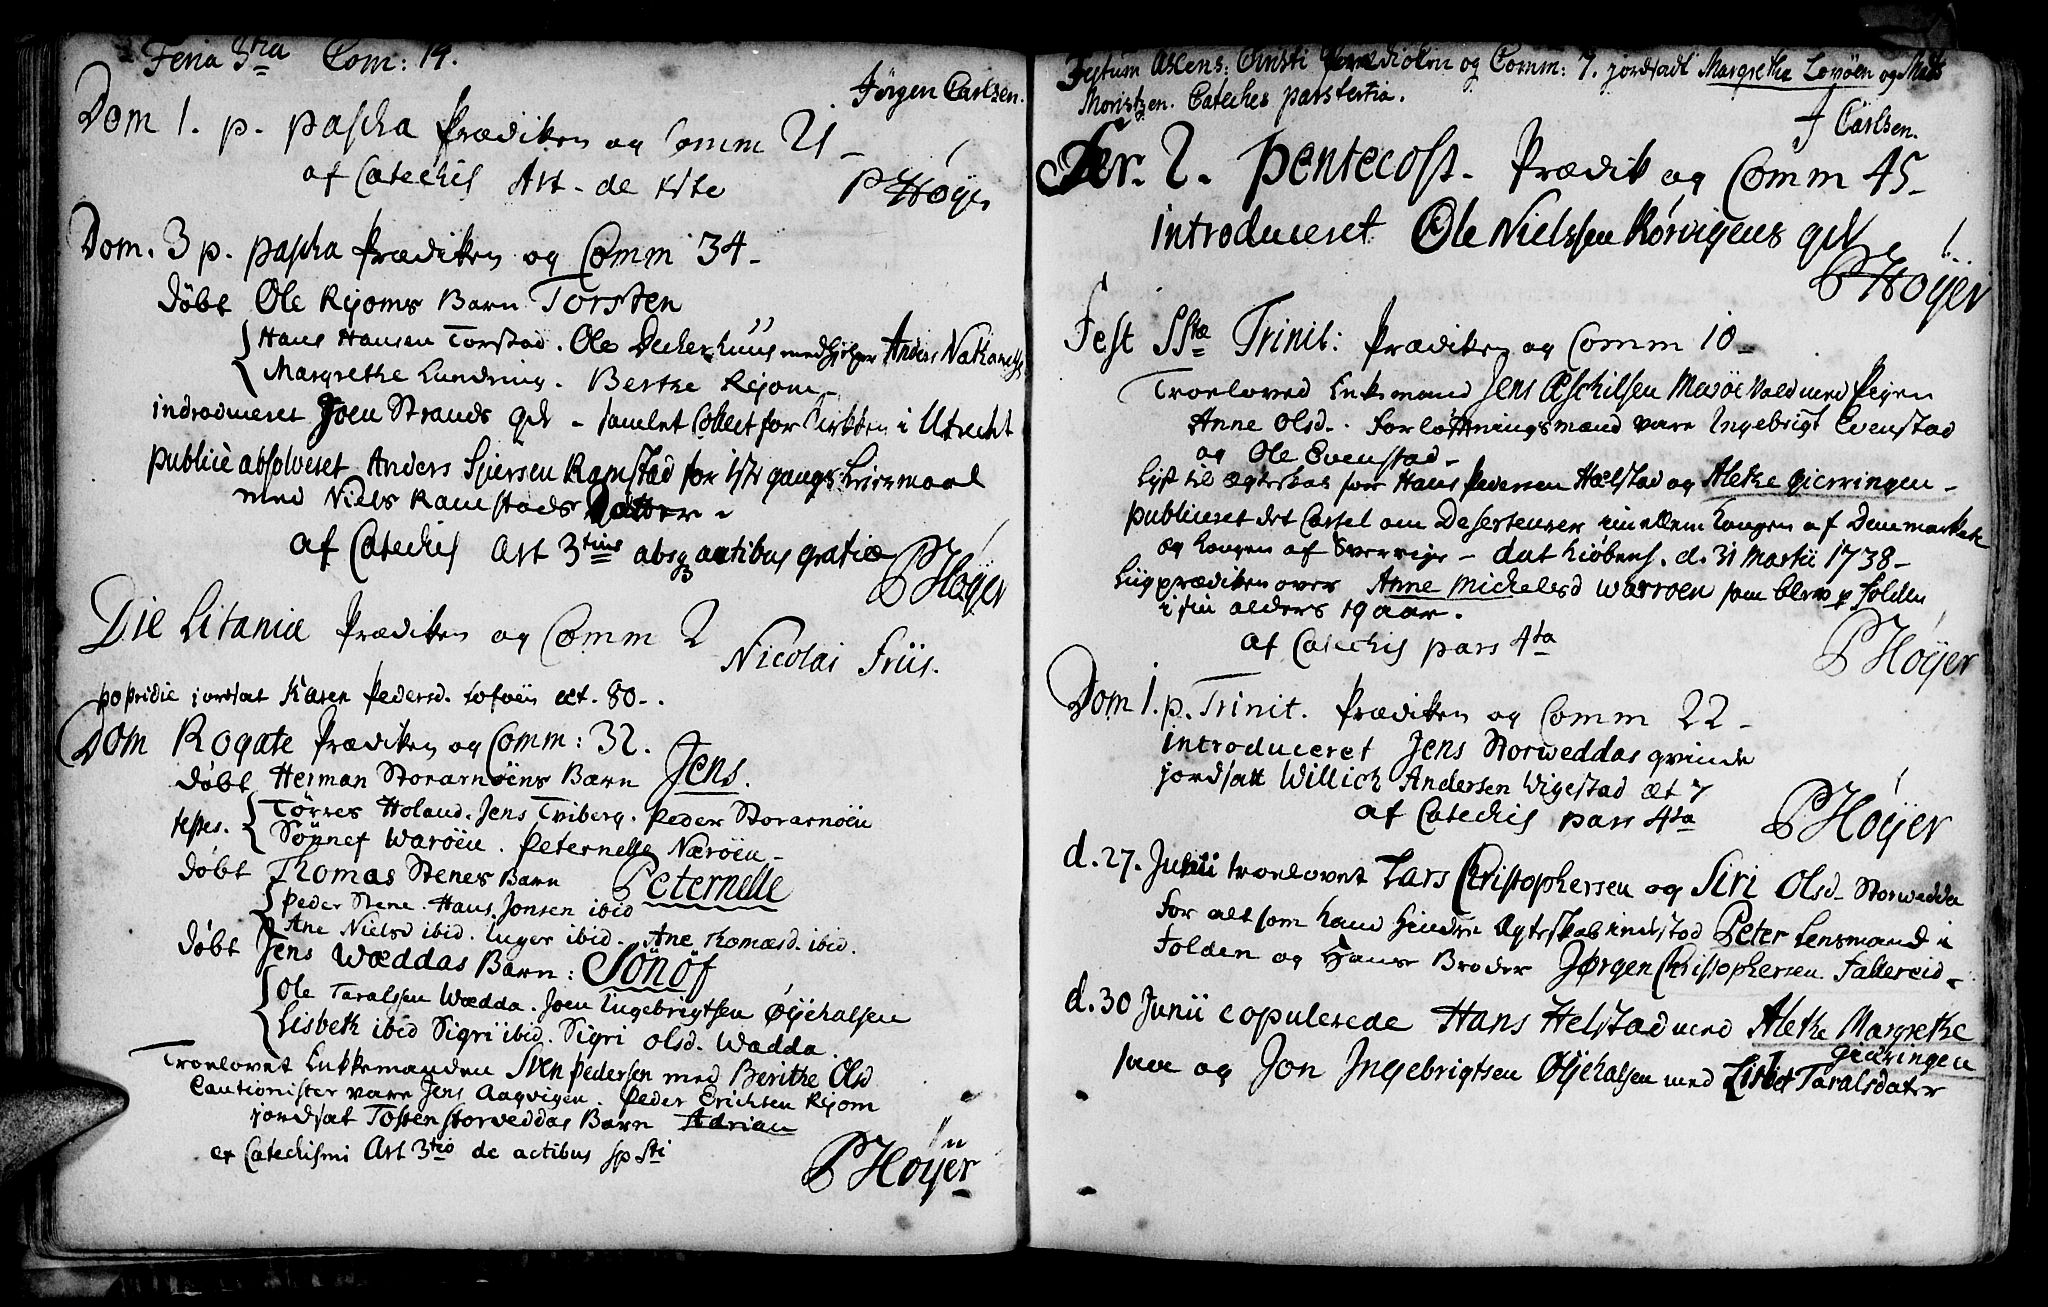 Feria 3tia Com: 14.
Jørgen Carlsen.
Dom 1. p. pascha Prædiken og Comm 21
af Catechis Art. de
PHøyer
Dom. 3 p. pascha Prædiken og Comm 34
døbt Ole Rejoms Barn Torsten
Hans Hansen Torstad. Ole Deckerhuus Anders
Margrethe Lundring. Berthe Rejom
introduceret Joen Strands qv samlet Collect for Kirken i Utrecht
publicè absolveret Anders Sjursen Ramstad for 1ste gangs Leiermaal
med Niels Ramstads Datter
af Catechis Art 3tius absq actibus gratiæ
PHøyer
Die Litaniæ Prædiken og Comm 2
Nicolai Friis.
jordsat Karen Pedersd. Loføen æt. 80
Dom Rogate Prædiken og Comm: 32.
døbt Herman Storarnøens Barn Jens.
testes. Tørres Holand. Jens Triberg. Peder Storarnøen
Søynef Warøen. Peternelle Nærøen
døbt Thomas Stenes Barn Peternelle
Peder Stene. Hans Jonsen ibid
Ane Nielsd ibid. Inger ibid. Ane Thomæsd. ibid.
døbt Jens Wæddas Barn: Sönöf
Ole Taralsen Wædda. Joen Ingebrigtsen Øyehalsen
Lisbeth ibid Sigri ibid. Sigri Olsd. Wædda.
Troelovet Enkemanden Sven Pedersen med Berithe Olsd
Cautionister vare Jens Aagvigen. Peder Erichsen Rejom
jordsat Tosten Storweddas Barn Adrian
ex Catechismi Art 3tio de actibus sp sti
PHøyer
Festum Ascens: Christi Prædiken og Comm: 7. jordsadt Margrethe Lovøen og Mats
Moritzen. Cateches pars tertia.
J Carlsen.
Fer. 2. Pentecost. Prædik og Comm 45
introduceret Ole Nielssen Rørvigens qv
PHøyer
Fest SStæ Trinit: Prædiken og Comm 10
Troeloved Enkemand Jens Æschilsen Marøe Vold med Pigen
Anne Olsd. Forlovningsmænd vare Ingebrigt Evenstad
og Ole Evenstad
Lyst til ægteskab for Hans Pedersen Hælstad og Alethe Gierringen
publiceret det Cartel om Deserteurer imellem Kongen af Denmark
og Kongen af Sverrige dat Kiøbenh. d. 31 Martii 1738
Liigprædiken over Anne Michelsd Warroen som blev p Folden
i sin alders 19 aar.
af Catechis pars 4ta
PHøyer
Dom 1. p. Trinit. Prædiken og Comm 22
introduceret Jens Storweddas qvinde
jordsatt Willich Andersen Wigestad æt 7
af Catechis pars 4ta
PHøyer
d. 27. Junii troelovet Lars Christophersen og Siri Olsd. Storwedda
For alt som hand hindre Ægteskab indstod Peter Lensmand i
Folden og Hans Broder Jørgen Christophersen Fallereid
d. 30 Junii copulerede Hans Helstad med Alethe Margrethe
Gierringen
samt og Jon Ingebrigtsen Øyehalsen med Lisbet Taralsdater